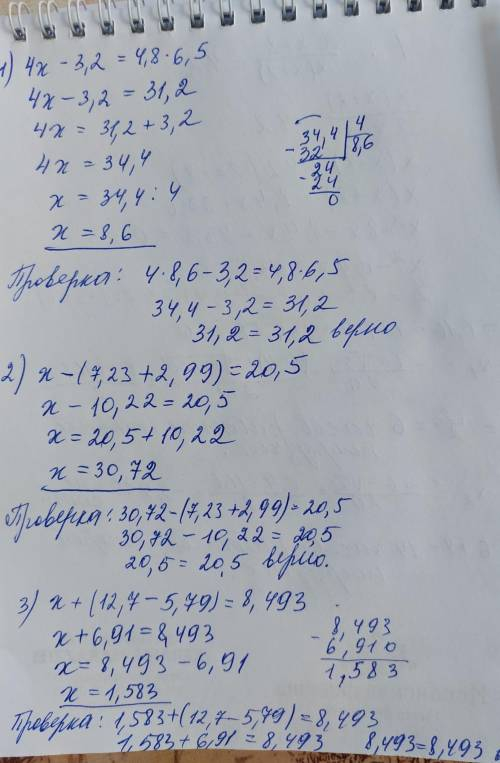 1) 4х - 3,2 = 4,8 · 6,5
4х - 3,2 = 31,2
4х = 31,2 + 3,2
4х = 34,4
х = 34,4 : 4
х = 8,6
34,4 | 4
- 32 8,6
24
- 24
0
Проверка: 4 · 8,6 - 3,2 = 4,8 · 6,5
34,4 - 3,2 = 31,2
31,2 = 31,2 верно
2) х - (7,23 + 2,99) = 20,5
х - 10,22 = 20,5
х = 20,5 + 10,22
х = 30,72
Проверка: 30,72 - (7,23 + 2,99) = 20,5
30,72 - 10,22 = 20,5
20,5 = 20,5 верно.
3) х + (12,7 - 5,79) = 8,493
х + 6,91 = 8,493
х = 8,493 - 6,91
х = 1,583
- 8,493
6,910
1,583
Проверка: 1,583 + (12,7 - 5,79) = 8,493
1,583 + 6,91 = 8,493 8,493 = 8,493